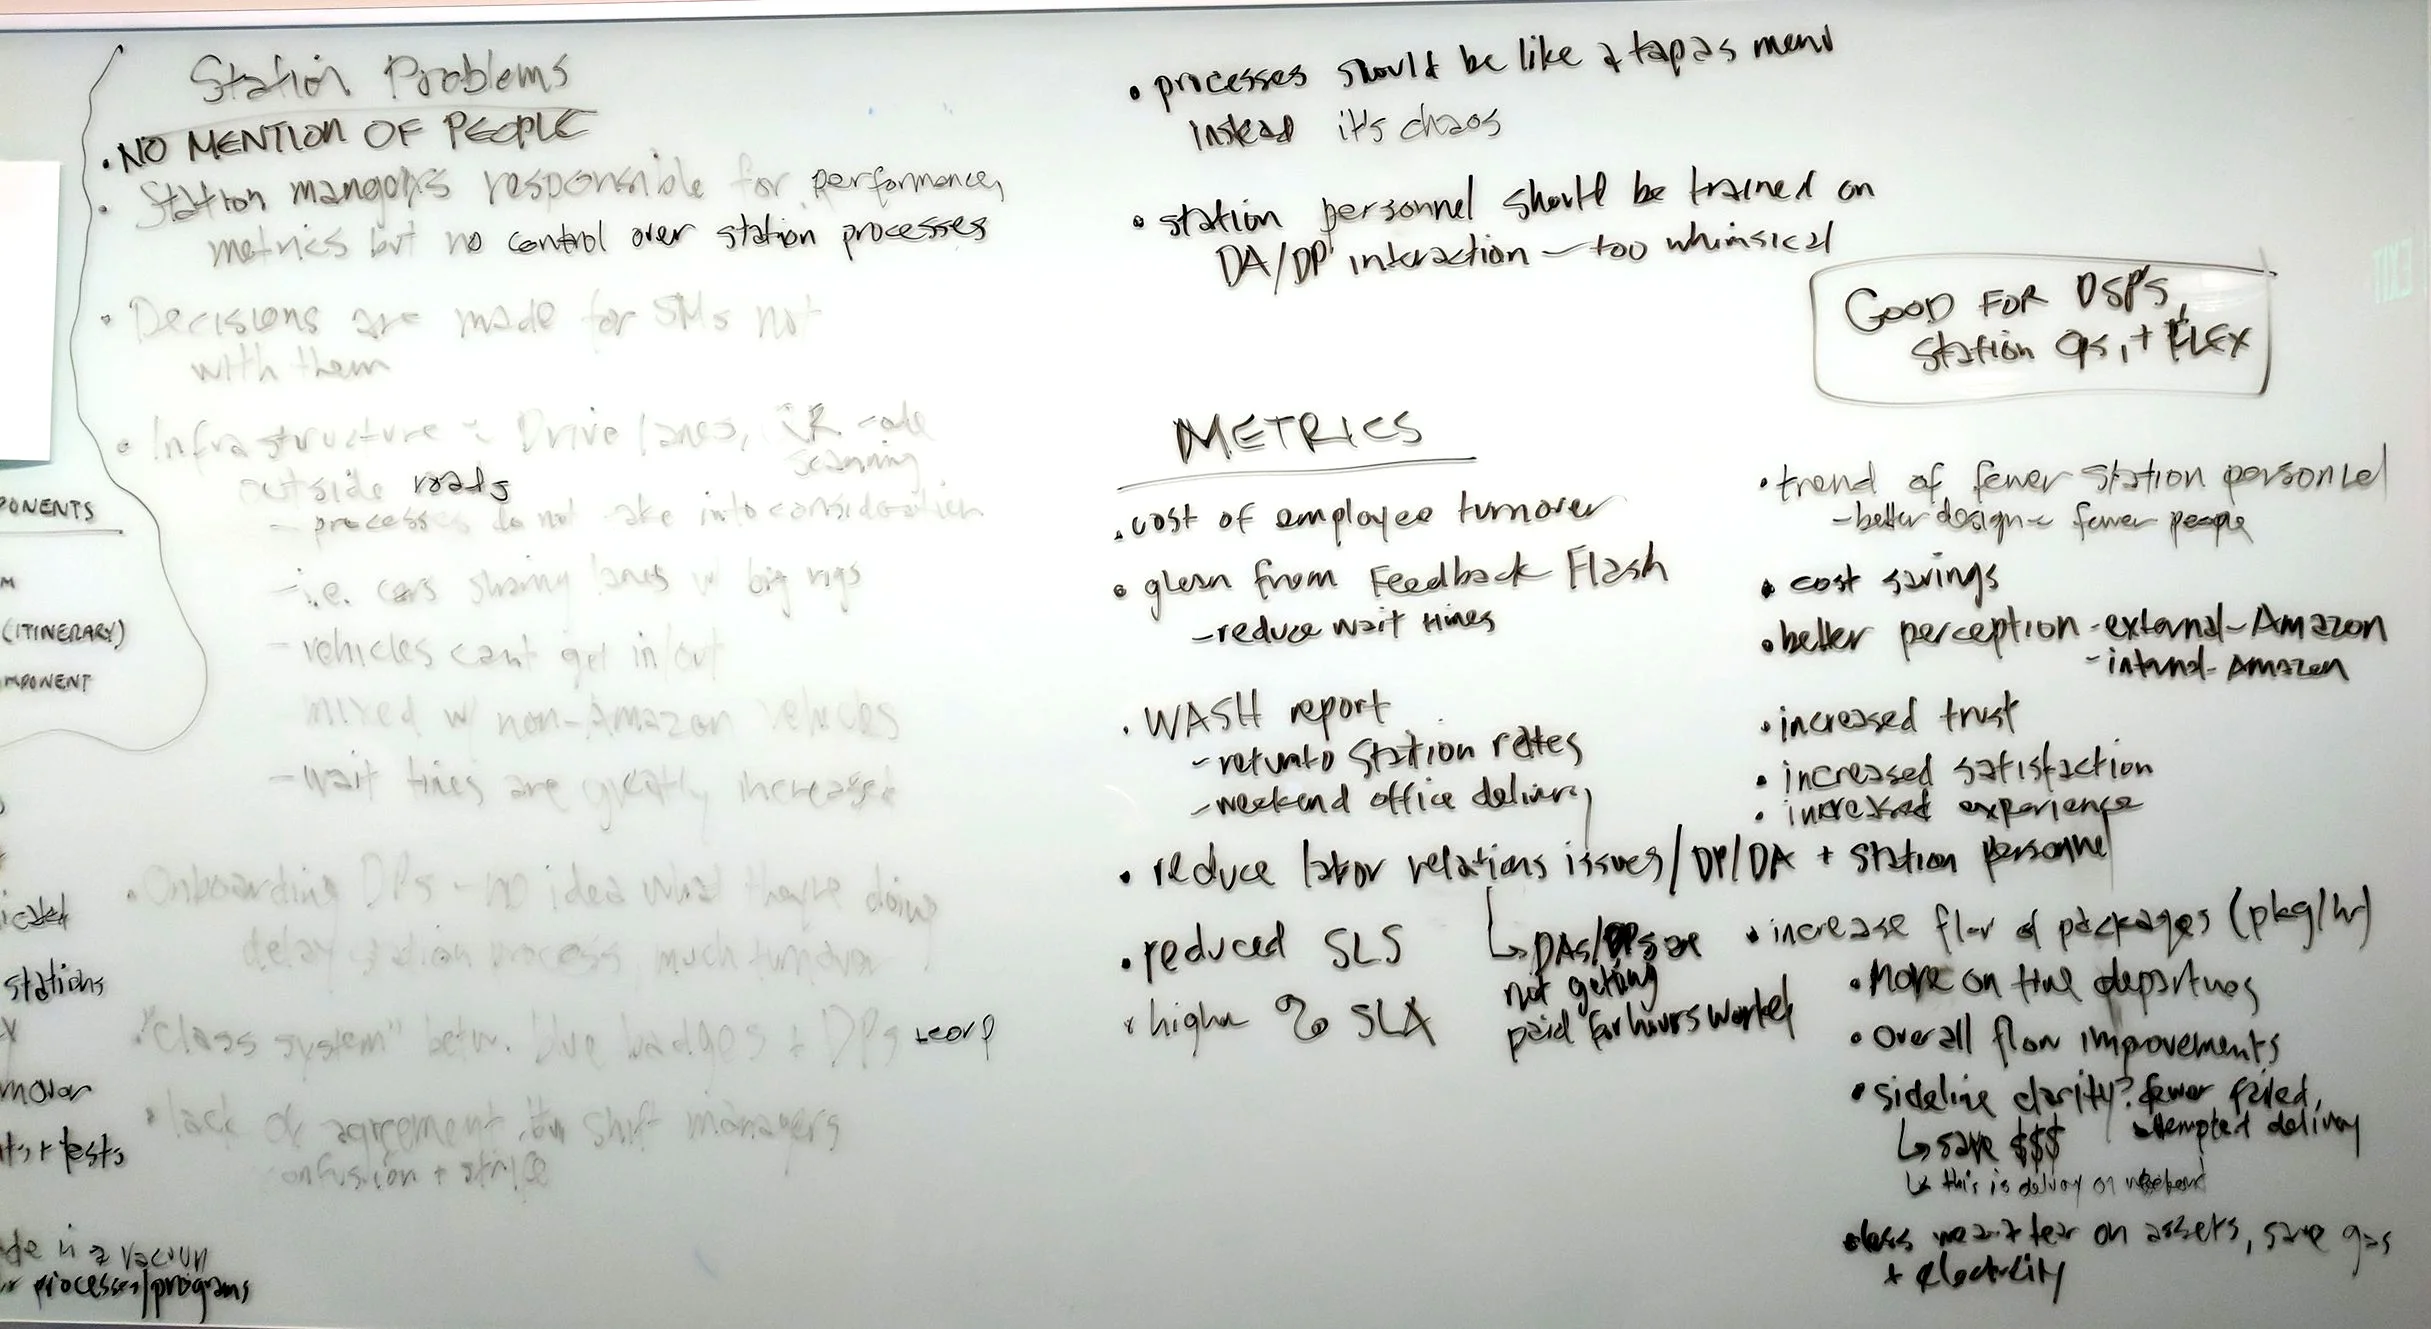 Station Problems
• NO MENTION OF PEOPLE
• Station managers responsible for performance,
metrics but no control over station processes
• Decisions are made for SMs not
with them
• Infrastructure : Drive lanes, QR code
scanning
outside roads
- processes do not take into consideration
- i.e. cars sharing lanes w/ big rigs
- vehicles cant get in/out
mixed w/ non-Amazon vehicles
- wait times are greatly increased
• Onboarding DPs - no idea what they're doing
delay station process, much turnover
• "class system" betw. blue badges + DPs + corp
• lack of agreement btw shift managers
confusion + strife
PONENTS
M
(ITINERARY)
MPONENT
icated
stations
ts + tests
de in a vacuum
r processes/programs
• processes should be like a tapas menu
instead it's chaos
• station personnel should be trained on
DA/DP interaction - too whimsical
GOOD FOR DSPS,
Station Ops, + FLEX
METRICS
• cost of employee turnover
• glean from Feedback Flash
- reduce wait times
• WASH report
- return to Station rates
- weekend office delivery
• reduce labor relations issues / DP/DA + Station personnel
↳ DAs/DPs are
not getting
paid for hours worked
• reduced SLS
• higher % SLA
• trend of fewer station personnel
- better design = fewer people
• cost savings
• better perception - external - Amazon
- internal - Amazon
• increased trust
• increased satisfaction
• increased experience
• increase flow of packages (pkg/hr)
• More on time departures
• Overall flow improvements
• sideline clarity? fewer failed,
attempted delivery
↳ save $$$
↳ this is delivery on weekend
• less wear + tear on assets, save gas
+ electricity
EXIT